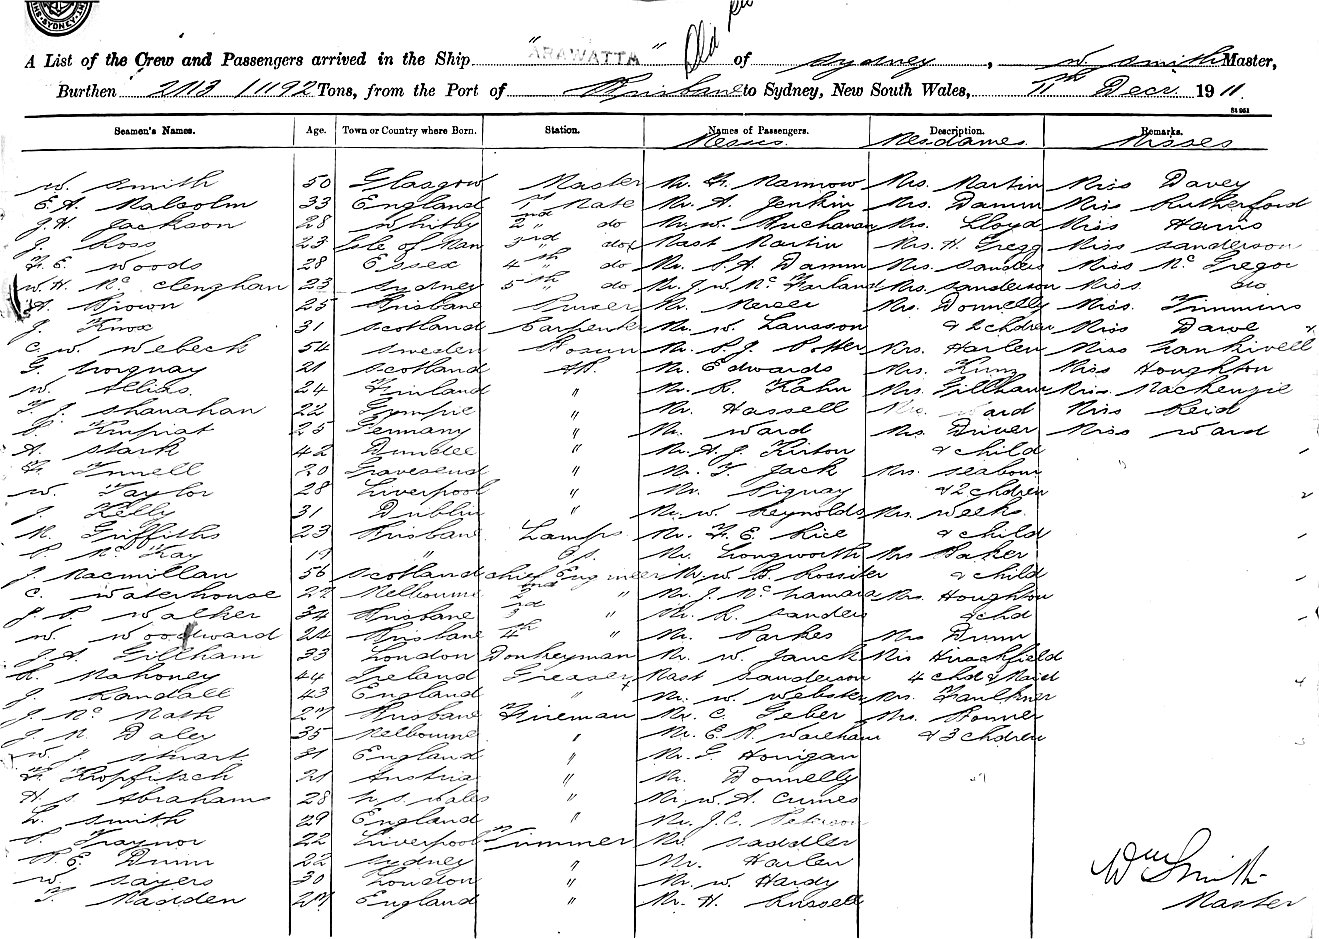 SYDNEY
Old
A List of the Crew and Passengers arrived in the Ship "ARAWATTA" of Sydney, W. Smith Master,
Burthen 2113 / 1192 Tons, from the Port of Brisbane to Sydney, New South Wales, 11th Decr 1911.
Seamen's Names. Age. Town or Country where Born. Station. Names of Passengers. Description. Remarks.
Messrs. Mesdames. Misses
W. Smith 50 Glasgow Master Mr. Mrs. Martin Miss Davey
E. A. Malcolm 33 England 1st Mate Mr. A. Jenkin Mrs. Damm Miss Rutherford
J. H. Jackson 28 Whitby 2nd " do Mr. W. Buchanan Mrs. Lloyd Miss Harris
J. Ross 23 Isle of Man 3rd " do Mast Martin Mrs. H. Gregg Miss Sanderson
F. E. Woods 28 Essex 4th do Mr. S. A. Damm Mrs. Sanders Miss McGregor
W. H. McClenghan 23 Sydney 5th do Mr. J. W. McFarland Mrs. Sanderson Miss do
A. Brown 25 Brisbane Purser Mr. Mercer Mrs. Donnelly Miss Timmins
J. Knox 31 Scotland Carpenter Mr. W. Lawson & 2 chdren Miss Dawe
C. W. Webeck 54 Sweden Bosun Mr. P. J. Potter Mrs. Harlen Miss Lankivell
G. Torquay 21 Scotland AB. Mr. Edwards Mrs. King Miss Houghton
W. 24 Finland " Mr. R. Kahn Mrs. Gillham Miss Mackenzie
T. J. Shanahan 22 Gympie " Mr. Hassell Mrs. Ward Miss Reid
25 Germany " Mr. Ward Mrs. Driver Miss Ward
A. Stark 42 Dundee " Mr. A. J. Kirton & child
F. 20 Gravesend " Mr. T. Jack Mrs. Seabourn
W. Taylor 28 Liverpool " Mr. Piguay & 2 chdren
J. Kelly 31 Dublin " Mr. W. Reynolds Mrs. Weeks
R. Griffiths 23 Brisbane Lamps Mr. F. E. Rice & child
P. McKay 17 " OS. Mr. Longworth Mrs Baker
J. Macmillan 56 Scotland Chief Engineer Mr W. B. Rossiter & child
C. Waterhouse 27 Melbourne 2nd " Mr. J. McNamara Mrs. Houghton
J. P. Walker 34 Brisbane 3rd " Mr. R. Sanders & chd
W. Woodward 24 Brisbane 4th " Mr. Parkes Mrs Dunn
J. A. Gillham 33 London Donkeyman Mr. W. Jauck Mrs Hirschfield
R. Mahoney 44 Ireland Greaser Mast Sanderson 4 chd & Maid
J. Randall 43 England " Mr. W. Webster Mrs. Faulkner
J. McMath 27 Brisbane Fireman Mr. C. Geber Mrs. Bonner
J. N. Daley 35 Melbourne " Mr. E. R. Wareham & 3 chdren
W. J. Stuart 31 England " Mr. G. Horrigan
F. Kropfitsch 21 Austria " Mr. Donnelly
H. S. Abrahams 28 N S Wales " Mr W. A. Curnes
L. Smith 29 England " Mr. J. C. Peterson
P. Traynor 22 Liverpool Trimmer Mr. Saddler
A. E. Dunn 22 Sydney " Mr. Harlen
W. Sayers 30 London " Mr. W. Hardy
T. Madden 27 England " Mr. H. Russell
Wm Smith
Master